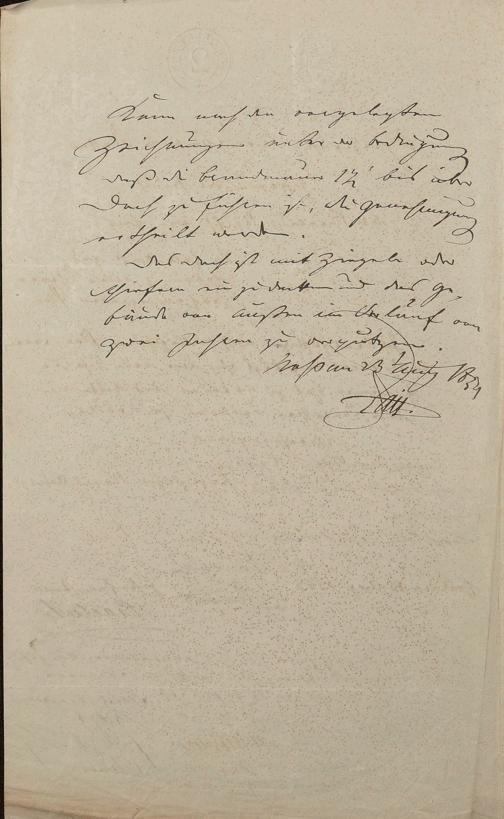 Kann nach den vorgelegten
Zeichnungen unter der bedingung
daß die brandmauer 1½' bis über
Dach zu führen ist, die genehmigung
ertheilt werden.
Das dach ist mit Ziegeln oder
Schiefern einzudecken und das Ge-
bäude von außen im Verlauf von
zwei Jahren zu verputzen.
Nassau 23 1854